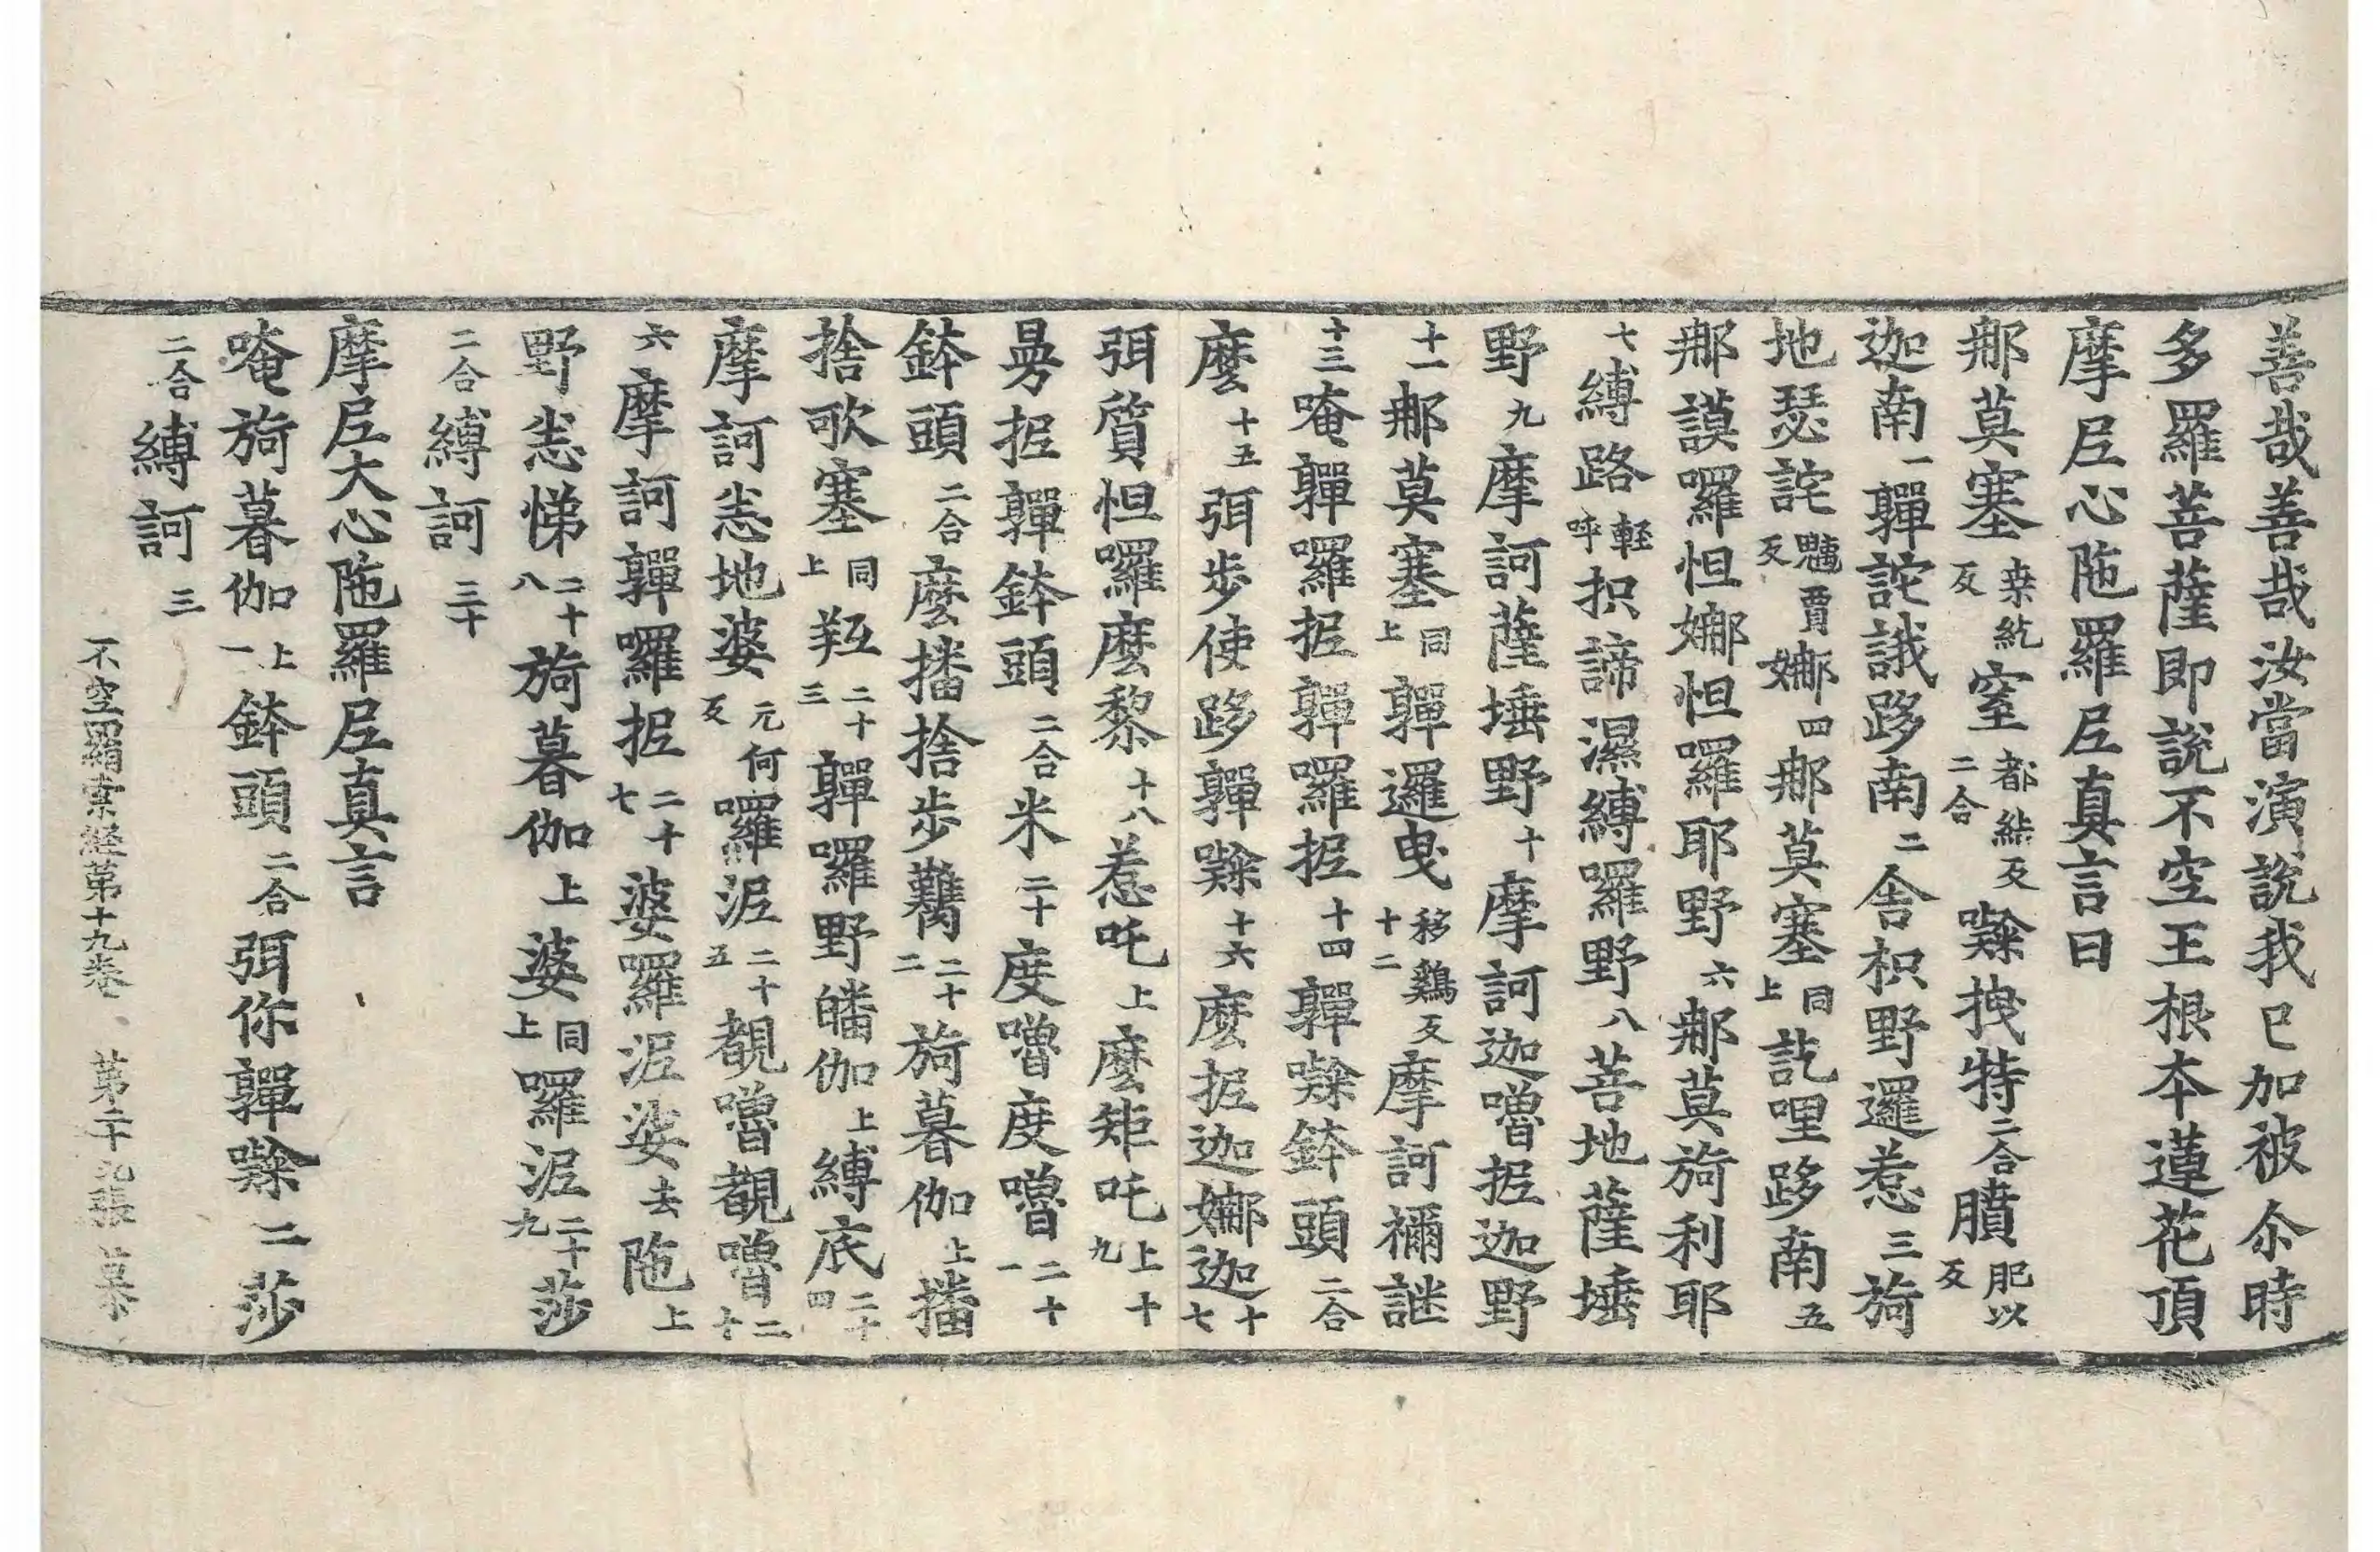 善哉善哉汝當演說我已加被尒時
多羅菩薩即說不空王根本蓮花頂
摩𡰱心陁羅𡰱真言曰
郍莫塞桒紇反窒都𡙇反二合㘑拽特二合臏肥以反
迦南一䩭詫誐跢南二舎枳野邏惹三旖
地瑟詫魑賈反娜四郍莫塞同上訖哩跢南五
郍謨囉怛娜怛羅耶野六郍莫旖利耶
七縛路輕呼抧諦濕縛羅野八菩地薩埵
野九摩訶薩埵野十摩訶迦嚕抳迦野
十一郍莫塞同上䩭邏曳移鷄反十二摩訶禰謎
十三唵䩭囉抳䩭囉抳十四䩭㘑鉢頭二合
麼十五弭步使跢䩭㘑十六麼抳迦娜迦十七
弭質怛囉麼黎十八惹吒上麼矩吒上十九
曩抳䩭鉢頭二合米二十度嚕度嚕二十一
鉢頭二合麼播捨步鸛二十二旖暮伽上播
捨歌塞同上𦍕二十三䩭囉野皤伽上縛底二十四
摩訶恙地婆元何反囉泥二十五覩嚕覩嚕二十
六摩訶䩭囉抳二十七婆羅泥娑去陁上
野恙悌二十八旖暮伽上婆同上囉泥二十九莎
二合縛訶三十
摩𡰱大心陁羅𡰱真言
唵旖暮伽上一鉢頭二合弭你䩭㘑二莎
二合縛訶三
不空羂索経第十九卷 第二十九張 慕